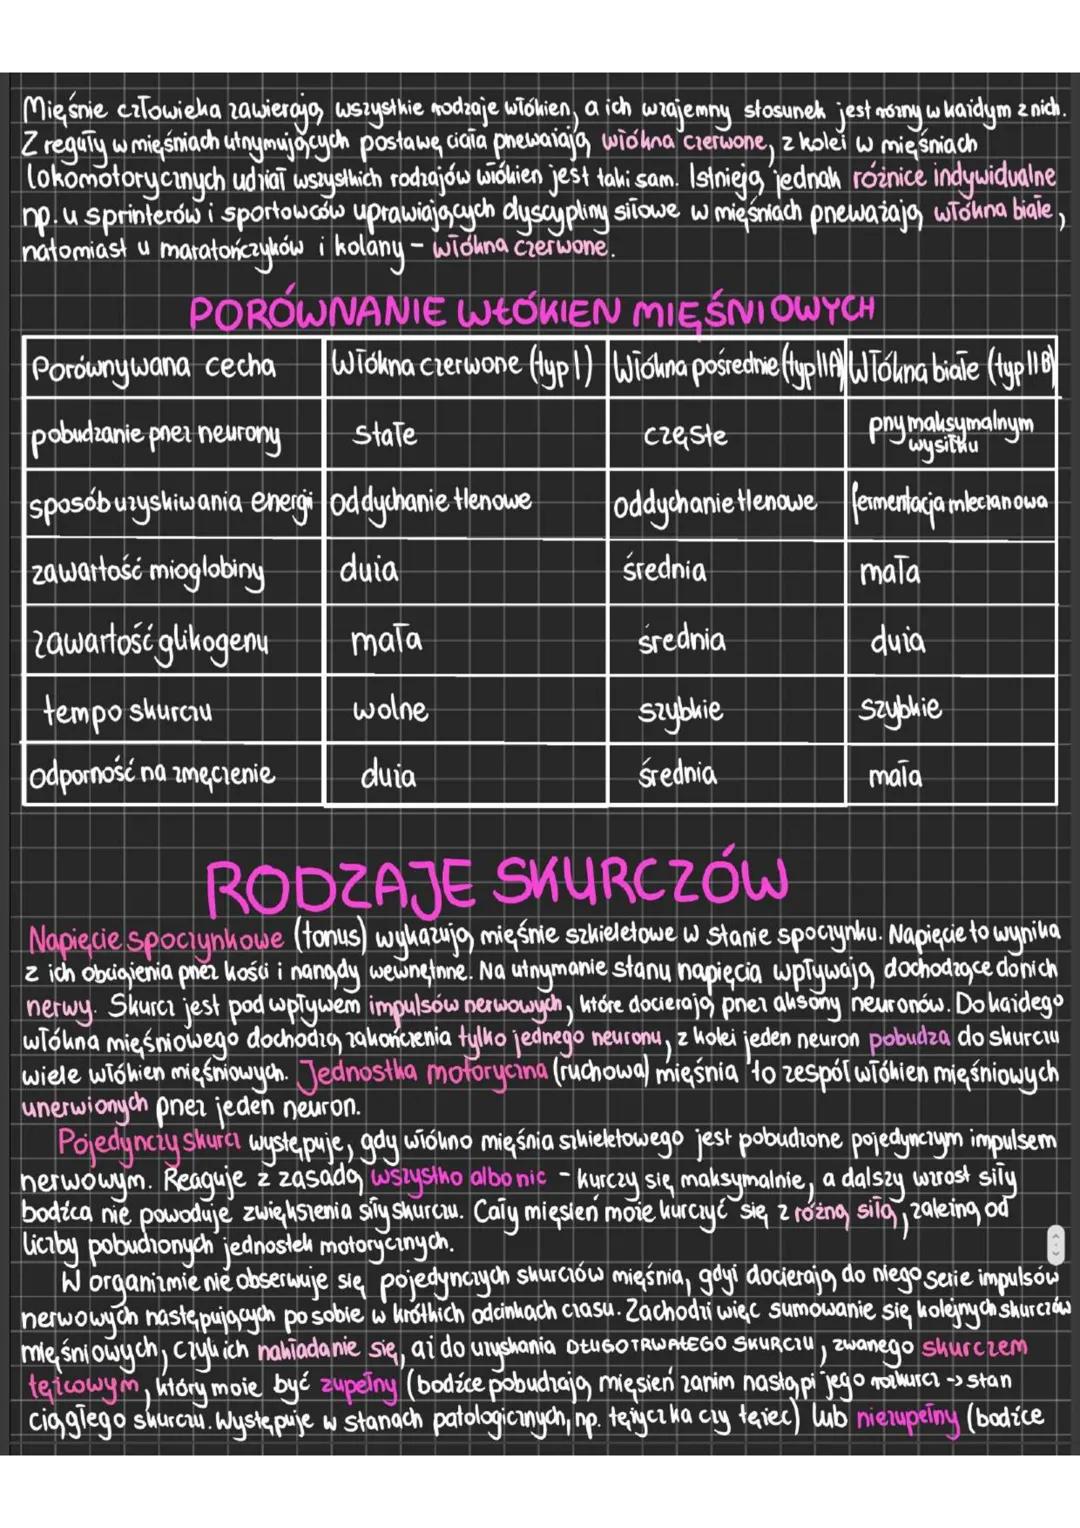 Mięśnie człowieka zawierają wszystkie rodzaje włókien, a ich wzajemny stosunek jest różny w każdym z nich.
Z reguły w mięśniach utrzymujących postawę ciała przeważają włókna czerwone, z kolei w mięśniach
lokomotorycznych udział wszystkich rodzajów włókien jest taki sam. Istnieją jednak różnice indywidualne
np. u sprinterów i sportowców uprawiających dyscypliny siłowe w mięśniach przeważają włókna białe,
natomiast u maratończyków i kolarzy - włókna czerwone.
PORÓWNANIE WŁÓKIEN MIĘŚNIOWYCH
Porównywana cecha Włókna czerwone (typ I) Włókna pośrednie (typ IIA) Włókna białe (typ IIB)
pobudzanie przez neurony stałe częste przy maksymalnym
wysiłku
sposób uzyskiwania energii oddychanie tlenowe oddychanie tlenowe fermentacja mleczanowa
zawartość mioglobiny duża średnia mała
zawartość glikogenu mała średnia duża
tempo skurczu wolne szybkie szybkie
odporność na zmęczenie duża średnia mała
RODZAJE SKURCZÓW
Napięcie spoczynkowe (tonus) wykazują mięśnie szkieletowe w stanie spoczynku. Napięcie to wynika
z ich obciążenia przez kości i narządy wewnętrzne. Na utrzymanie stanu napięcia wpływają dochodzące do nich
nerwy. Skurcz jest pod wpływem impulsów nerwowych, które docierają przez aksony neuronów. Do każdego
włókna mięśniowego dochodzą zakończenia tylko jednego neuronu, z kolei jeden neuron pobudza do skurczu
wiele włókien mięśniowych. Jednostka motoryczna (ruchowa) mięśnia to zespół włókien mięśniowych
unerwionych przez jeden neuron.
Pojedynczy skurcz występuje, gdy włókno mięśnia szkieletowego jest pobudzone pojedynczym impulsem
nerwowym. Reaguje z zasadą wszystko albo nic - kurczy się maksymalnie, a dalszy wzrost siły
bodźca nie powoduje zwiększenia siły skurczu. Cały mięsień może kurczyć się z różną siłą, zależną od
liczby pobudzonych jednostek motorycznych.
W organizmie nie obserwuje się pojedynczych skurczów mięśnia, gdyż docierają do niego serie impulsów
nerwowych następujących po sobie w krótkich odcinkach czasu. Zachodzi więc sumowanie się kolejnych skurczów
mięśniowych, czyli ich nakładanie się, aż do uzyskania DŁUGOTRWAŁEGO SKURCZU, zwanego skurczem
tężcowym, który może być zupełny (bodźce pobudzają mięsień zanim nastąpi jego rozkurcz -> stan
ciągłego skurczu. Występuje w stanach patologicznych, np. tężyczka czy tężec) lub niezupełny (bodźce